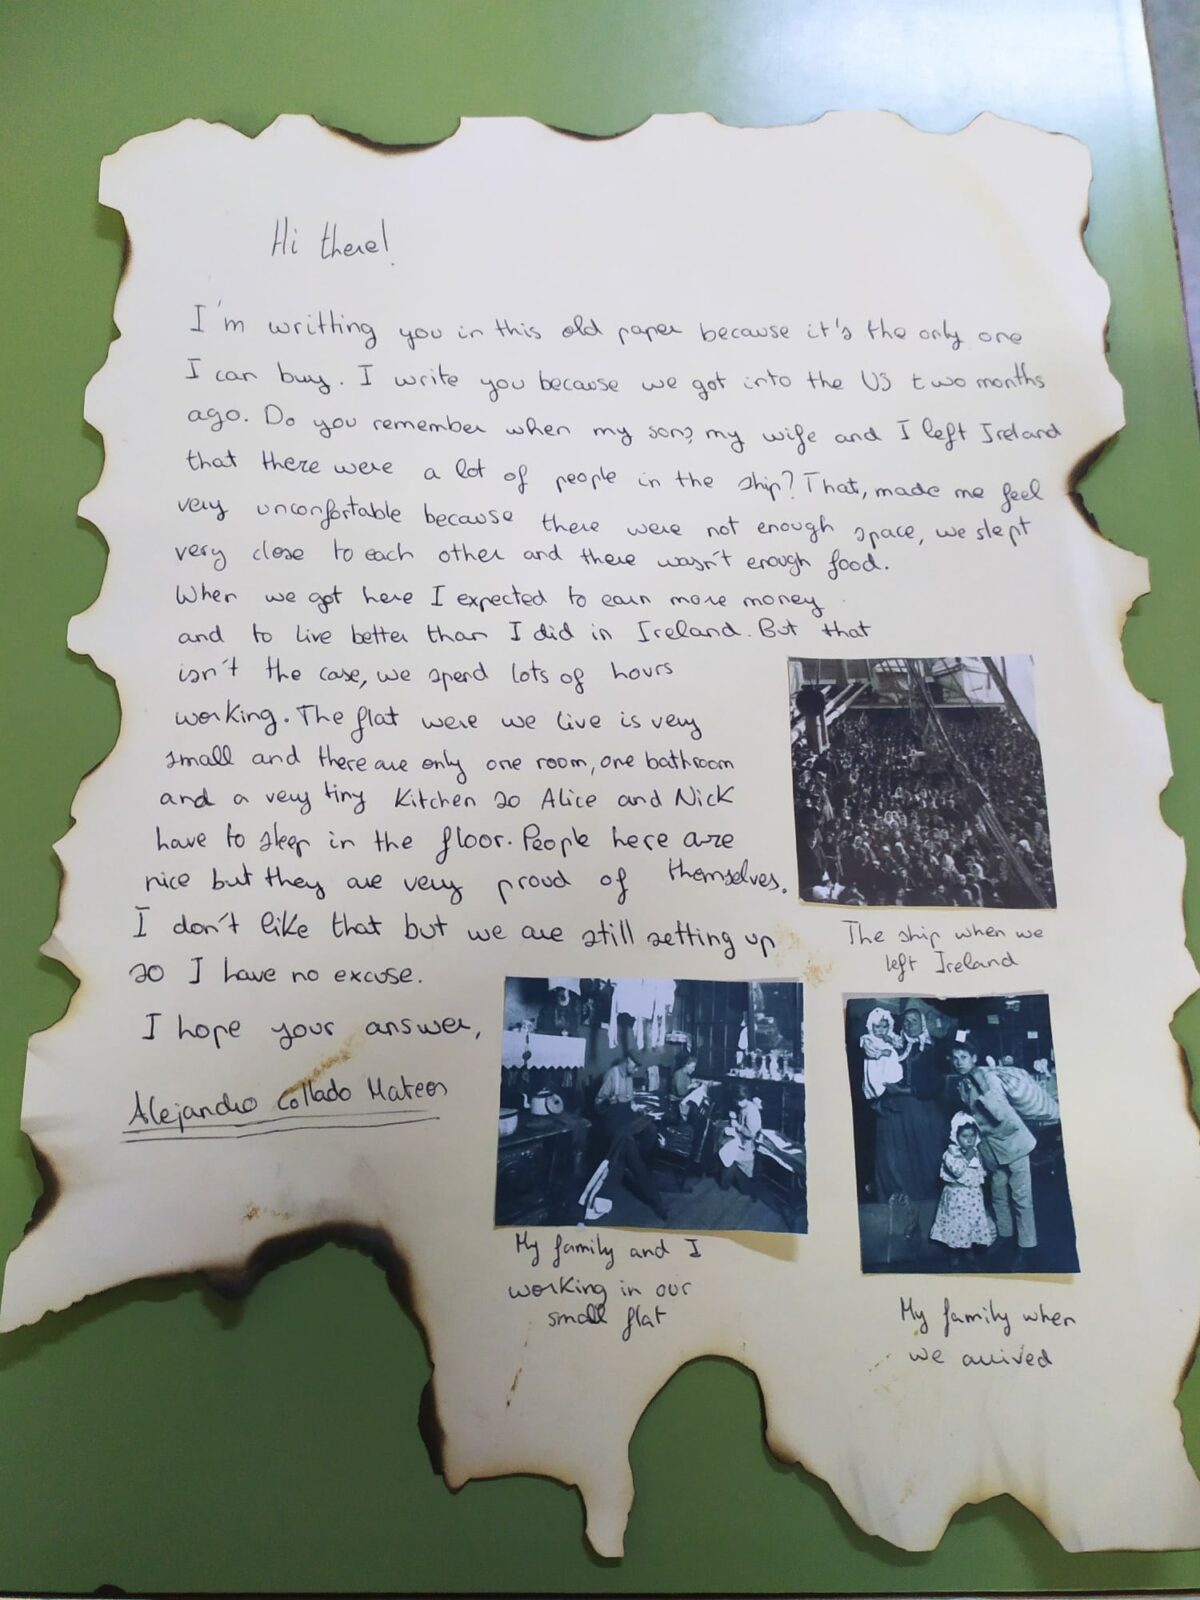 Hi there!
I'm writting you in this old paper because it's the only one
I can buy. I write you because we got into the US two months
ago. Do you remember when my son, my wife and I left Ireland
that there were a lot of people in the ship? That, made me feel
very unconfortable because there were not enough space, we slept
very close to each other and there wasn't enough food.
When we got here I expected to earn more money
and to live better than I did in Ireland. But that
isn't the case, we spend lots of hours
working. The flat were we live is very
small and there are only one room, one bathroom
and a very tiny Kitchen so Alice and Nick
have to sleep in the floor. People here are
nice but they are very proud of themselves.
I don't like that but we are still setting up
so I have no excuse.
I hope your answer,
Alejandro Collado Mateos
The ship when we
left Ireland
My family and I
working in our
small flat
My family when
we arrived